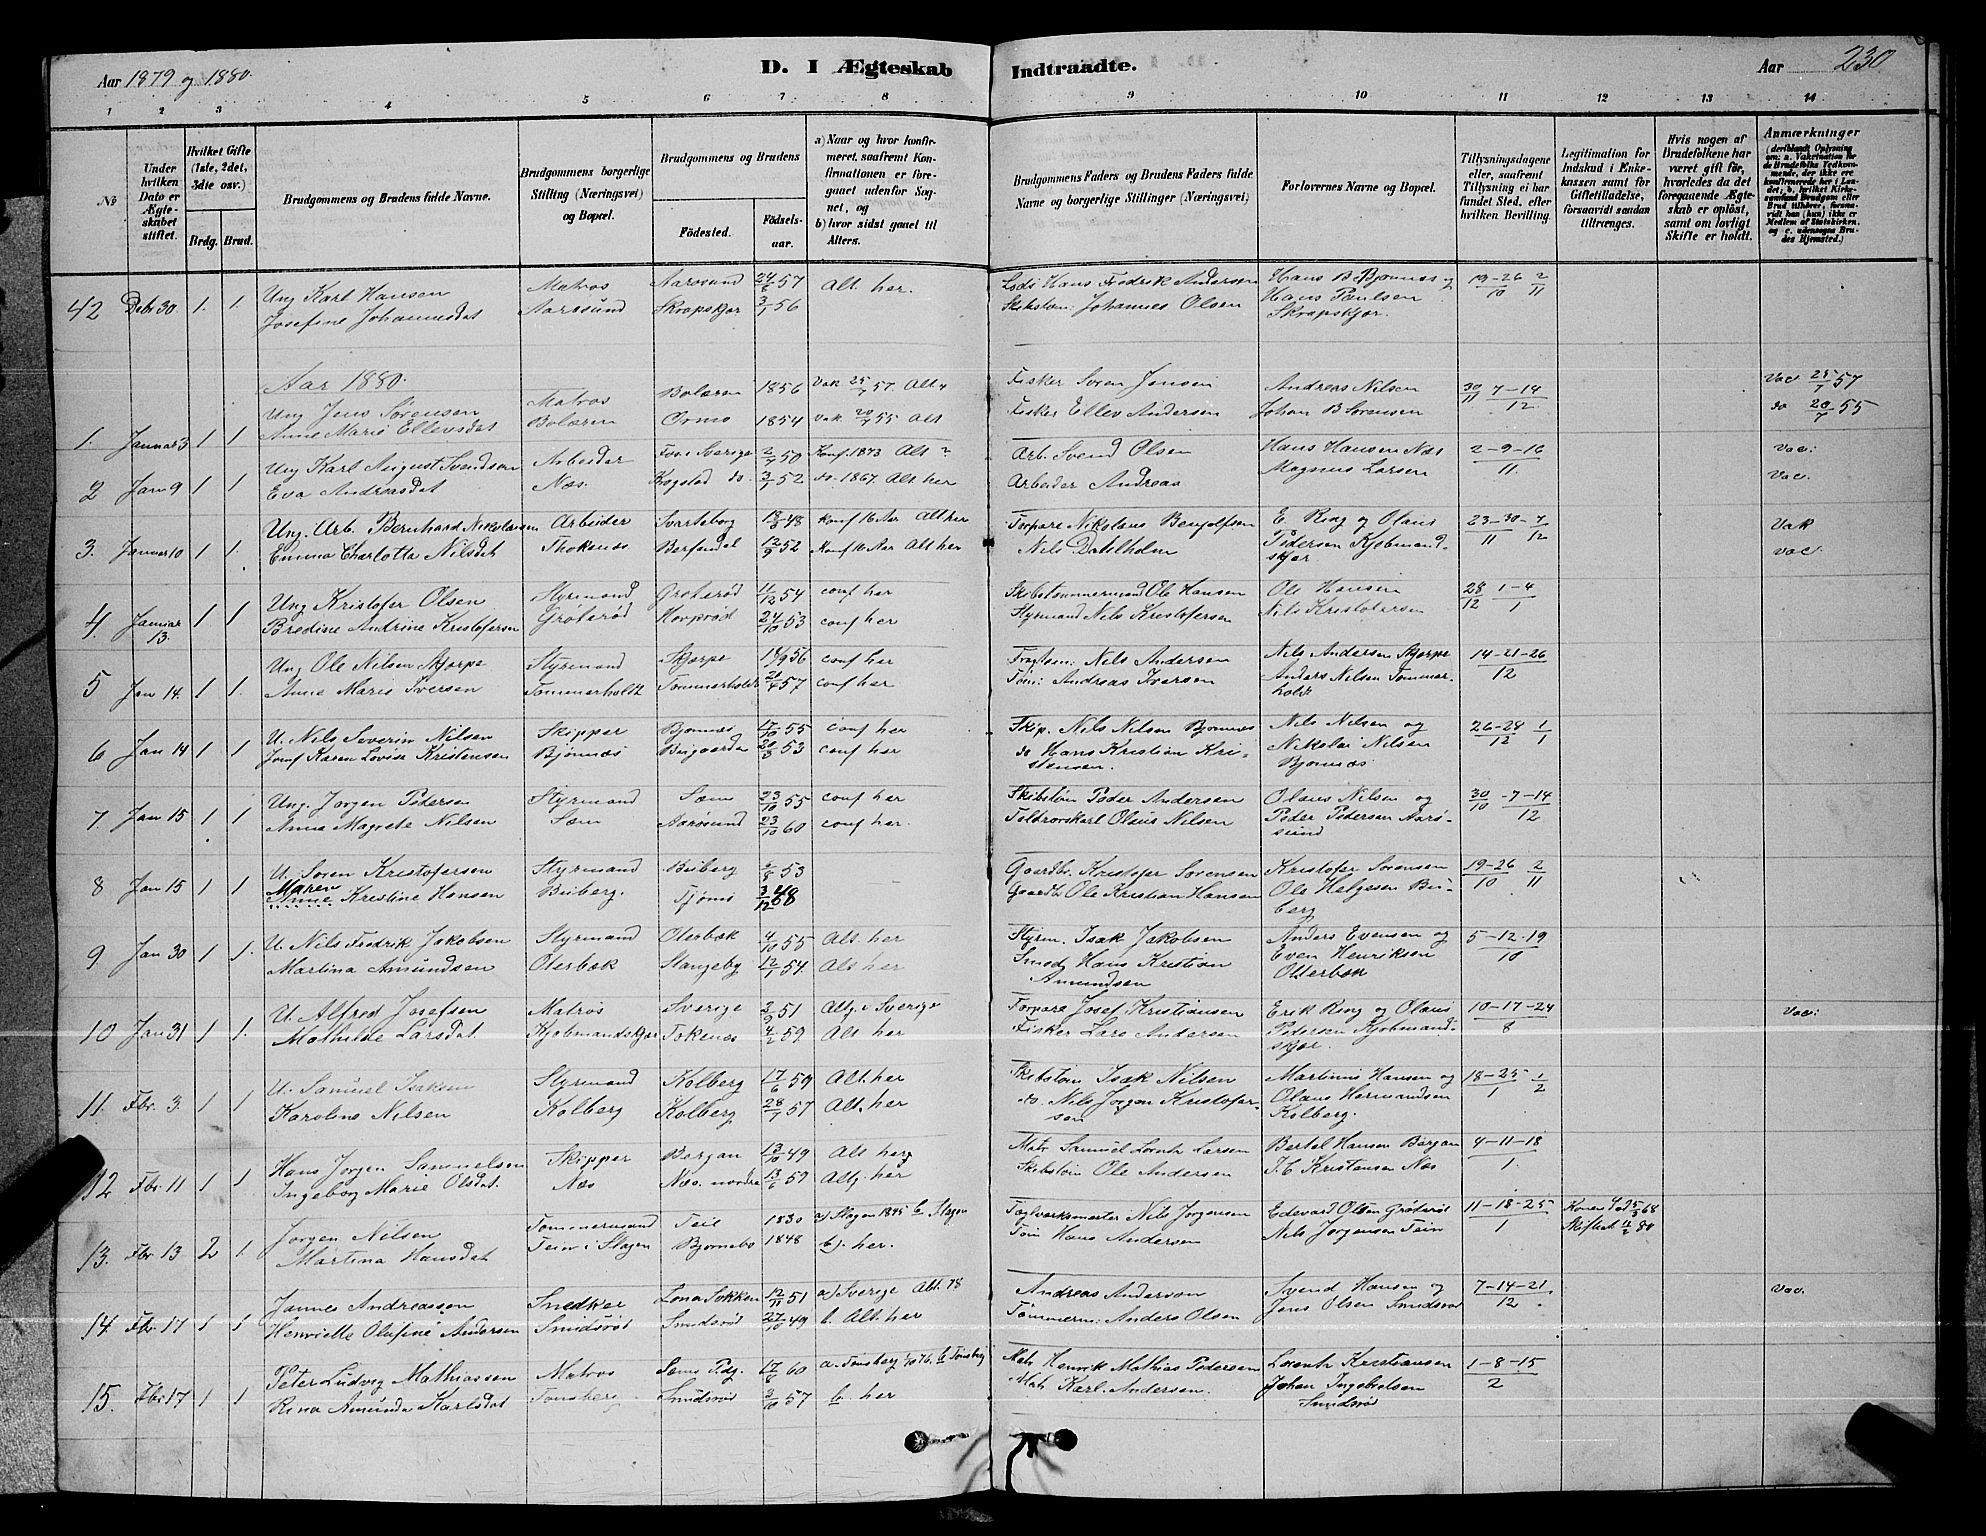 Aar 1879 og 1880.
D. I Ægteskab Indtraadte.
Aar 230
1 2 3 4 5 6 7 8 9 10 11 12 13 14
No
Under hvilken Dato er Ægteskabet stiftet.
Hvilket Gifte (1ste, 2det, 3die osv.)
Brdg. Brud.
Brudgommens og Brudens fulde Navne.
Brudgommens borgerlige Stilling (Næringsvei) og Bopæl.
Brudgommens og Brudens
Födested. Födselsaar.
a) Naar og hvor konfirmeret, saafremt Konfirmationen er foregaaet udenfor Sognet, og
b) hvor sidst gaaet til Alters.
Brudgommens Faders og Brudens Faders fulde Navne og borgerlige Stillinger (Næringsvei)
Forlovernes Navne og Bopæl.
Tillysningsdagene eller, saafremt Tillysning ei har fundet Sted, efter hvilken Bevilling.
Legitimation for Indskud i Enkekassen samt for Giftetilladelse, forsaavidt saadan tiltrænges.
Hvis nogen af Brudefolkene har været gift för, hvorledes da det foregaaende Ægteskab er oplöst, samt om lovligt Skifte er holdt.
Anmærkninger
42 Debr 30. 1. 1. Ung Karl Hansen Matros Aarosund 24/8 57 Alt her. Hans Fredrik Andersen Hans B Bjønnes og 19-26/10 2/11
Josefine Johannesdat Aarosund Skrapskjær 3/1 56 Skibstøm: Johannes Olsen Hans Paulsen
Skrapskjær.
Aar 1880.
Ung Jens Sørensen Matros Bolæren 1856 Vak 25/7 57. Alt Fisker Søren Jensen Andreas Nilsen 30/11 7-14/12 Vac 25/7 57
1. Januar 3 1 1 Anne Marie Ellevsdat Bolæren Ormo 1854 Vak 20/7 55 Alt Fisker Ellev Andersen Johan B Sørensen do 20/7 55
Ung Karl August Svendsen Arbeider Sverige 2/7 50 Konf. 1873 Alt Arb. Svend Olsen Hans Hansen Næs 2-9-16/11. Vac:
2 Jan 9 1 1 Eva Andreasdat Næs. Krogstad do. 3/1 52 do. 1867. Alt her Arbeider Andreas Magnus Larsen Vac.
Ung. Arb. Bernhard Nikolaisen Arbeider Svarteborg 48 Konf 16 Aar Alt her Torpare Nikolaus E. Ring og Olaus 23-30/11 - 7/12 Vak
3. Januar 10 1 1. Emma Charlotta Nilsdat Thokenæs 12/9 52 Konf 16 Aar Alt her Nils Dahlholm Pedersen Kjøbmandskjær. vac:
4 Januar 13. 1 1 Ung Kristofer Olsen Styrmand Grøterød 11/12 54 conf her Skibstømmermand Ole Hansen Ole Hansen 28/12 1-4/1
Bredine Andrine Kristofersen Grøterød Horperød 24/10 53 conf her Styrmand Nils Kristofersen Nils Kristofersen
Ung Ole Nilsen Skjerpe Styrmand Skjerpe 18/9 56 conf her Nils Andersen Nils Andersen Skjerpe 14-21-26/12
5 Jan 14. 1 1. Anne Marie Iversen Tømmerholt Tømmerholt 57 conf her Tøm: Andreas Iversen Anders Nilsen Tømmerholt
6 Jan 14 1 1 U. Nils Severin Nilsen Skipper Bjønnes 17/10 55 conf her Skip. Nils Nilsen Bjønnes Nils Nilsen og 26-28/12 1/1
Jomf Karen Lovise Kristensen Bjønnæs Bugaarden 53 conf her do Hans Kristian Kristensen. Nikolai Nilsen Bjønnæs
Ung. Jørgen Pedersen Styrmand Sæm 23/10 55 conf her Skibstøm Peder Andersen Olaus Nilsen og 30/10 - 7-14/12
7. Jan 15 1 1 Anna Magrete Nilsen Sæm Aarøsund 23/10 60 conf her. Toldrorskarl Olaus Nilsen Peder Pedersen Aarøsund
8 Jan 15 1 1 U. Søren Kristofersen Styrmand Buberg 53 Gaardbr. Kristofer Sørensen Kristofer Sørensen 19-26/10 2/11
Maren
Anne Kristine Hansen Buberg. Tjømø 3/12 48 Gaardb Ole Kristian Hansen Ole Helgesen Buberg
9 Jan 30 1 1. U. Nils Fredrik Jakobsen Styrmand Oterbæk 4/10 55 Alt. her Styrm. Isak Jakobsen Anders Evensen og 5-12-19/10
Martina Amundsen Oterbæk Stangeby 12/1 54. Alt her Smed Hans Kristian Amundsen Even Henriksen Otterbæk
10 Jan 31 1 1. U. Alfred Josefsen Matros Sverige 2/9 51 Altg. i Sverige Torpare Josef Kristiansen Erik Ring og Olaus 10-17-24/8 Vac:
Mathilde Larsdat Kjøbmandskjær Tokenæs 4/2 59 Alt. her Fisker Lars Andersen Pedersen Kjøbmandskjær.
11. Fbr. 3. 1 1 U. Samuel Isaksen Styrmand Kolberg 17/6 59 Alt. her Skibstøm Isak Nilsen Martinius Hansen og 18-25/1 1/2
Karoline Nilsen Kolberg Kolberg 28/7 57 Alt. her do. Nils Jørgen Kristofersen Olaus Hermandsen Kolberg.
12 Fbr. 11 1 1 Hans Jørgen Samuelsen Skipper Bergan 13/10 49 Alt her Matr Samuel Lorentz Larsen Bertel Hansen Bergan 4-11-18/1.
Ingeborg Marie Olsdat. Næs Næs. nordre 13/6 59 Altg. her Skibstøm Ole Andersen J. C Kristensen Næs
13. Fbr. 13 2 1 Jørgen Nilsen Tømmermand Teie 1830 a) Slagen 1845 b. Slagen Teglverksmester Nils Jørgensen Edevard Olsen Grøterød 11-18-25/1 Konen død 68 Skiftet 11/2 80
Martina Hansdat Teie i Slagen Bjørnebo 1848 b). her. Tøm Hans Andersen Nils Jørgensen Teie
14. Fbr. 17 1 1 Jannes Andreassen Snedker Lona Sokken 12/11 51 a) Sverige Alt. 78 Andreas Anderson Svend Hansen og 7-14-21/12. Vac.
Henriette Olufine Andersen Smidsrød Smidsrød 27/10 49 b. Alt. her Tømmerm: Anders Olsen Jens Olsen Smidsrød
15. Fbr 17 1 1 Peter Ludvig Mathiassen Matros Sems Pdg. 17/6 60 a. Tønsberg 76. b Tønsberg Matr Henrik Mathias Pedersen Lorentz Kristiansen 1-8-15/2
Rina Amunda Karlsdat Tønsberg Smidsrød 3/10 57 b. her Matr Karl Andersen. Johan Ingebretsen
Smidsrød